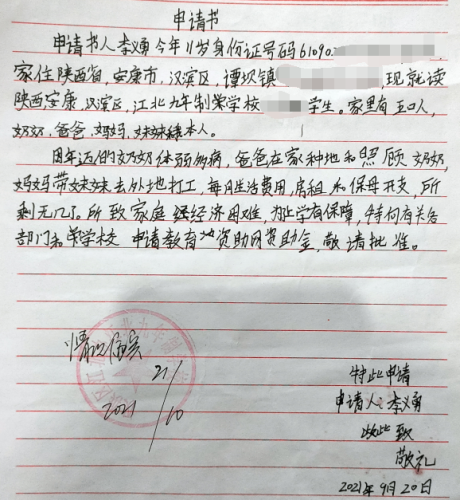 申请书
申请书人李义勇今年11岁身份证号码61090
家住陕西省,安康市,汉滨区,谭坝镇 ,现就读
陕西安康汉滨区,江北九年制学校 学生。家里有五口人,
奶奶,爸爸,妈妈,妹妹和本人。
因年迈的奶奶体弱多病,爸爸在家种地和照顾奶奶,
妈妈带妹妹去外地打工,每月生活费用,房租和保母开支,所
剩无几了。所致家庭经济困难,为上学有保障,特向有关各
部门和学校申请教育 资助网资助金,敬请批准。
情况属实
21/10
2021
特此申请
申请人:李义勇
此致
敬礼
2021年9月20日